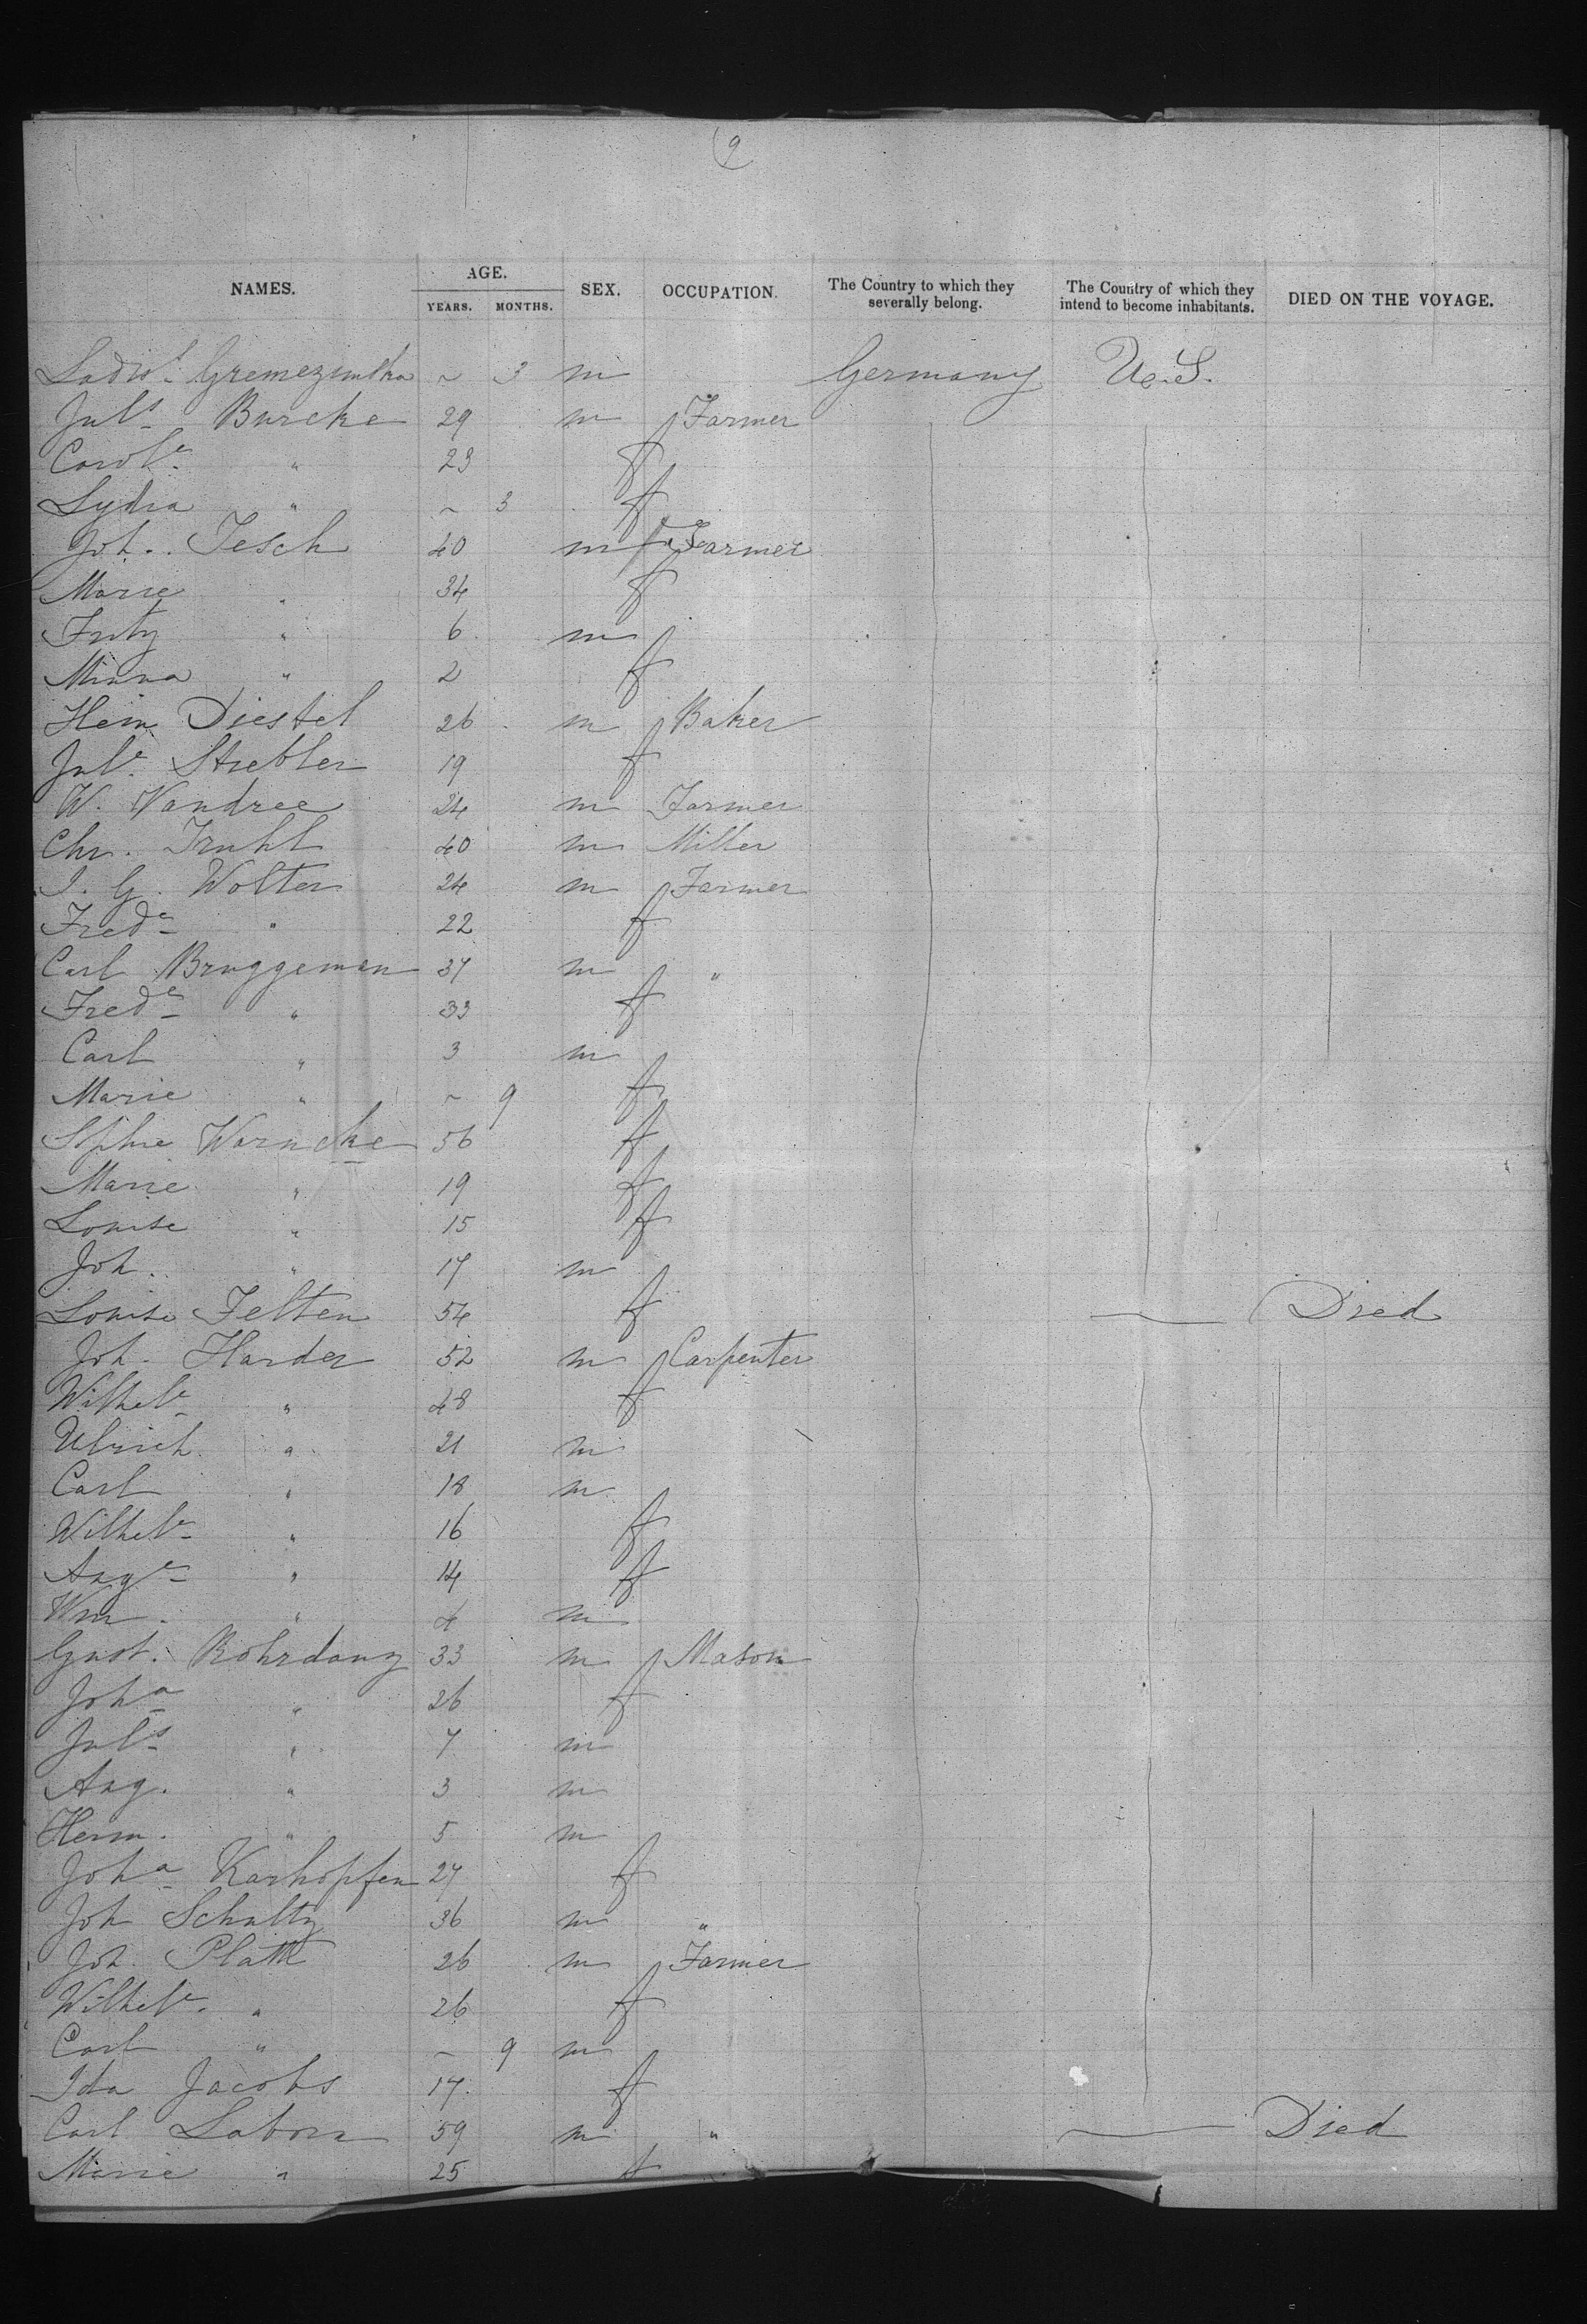 9
NAMES. AGE. SEX. OCCUPATION. The Country to which they severally belong. The Country of which they intend to become inhabitants. DIED ON THE VOYAGE.
YEARS. MONTHS.
Ladisl. ~ 3 m Germany U.S.
Juls Burcke 29 m Farmer
Carole " 23 f
Lydia " ~ 3 f
Joh. Tesch 40 m Farmer
Marie " 34 f
Fritz " 6 m
Minna " 2 f
Hein Diestel 26 m Baker
Jule. Strebler 19 f
W. Vandree 24 m Farmer
Chr. Truhl 40 m Miller
J. G. Wolter 24 m Farmer
Frede " 22 f
Carl Bruggeman 37 m "
Frede " 33 f
Carl " 3 m
Marie " ~ 9 f
Sophie Warncke 56 f
Marie " 19 f
Louise " 15 f
Joh. " 17 m
Louise Felten 54 f Died
Joh. Harder 52 m Carpenter
Wilhele " 48 f
Ulrich " 21 m
Carl " 18 m
Wilhele " 16 f
Auge " 14 f
Wm. " 4 m
Gust. Rohrdanz 33 m Mason
Joha " 26 f
Juls " 7 m
Aug. " 3 m
Herm. " 5 m
Joha Karhopfen 27 f
Joh Schultz 36 m "
Joh. Plath 26 m Farmer
Wilhele. " 26 f
Carl " ~ 9 m
Ida Jacobs 17 f
Carl Labora 59 m " Died
Marie " 25 f